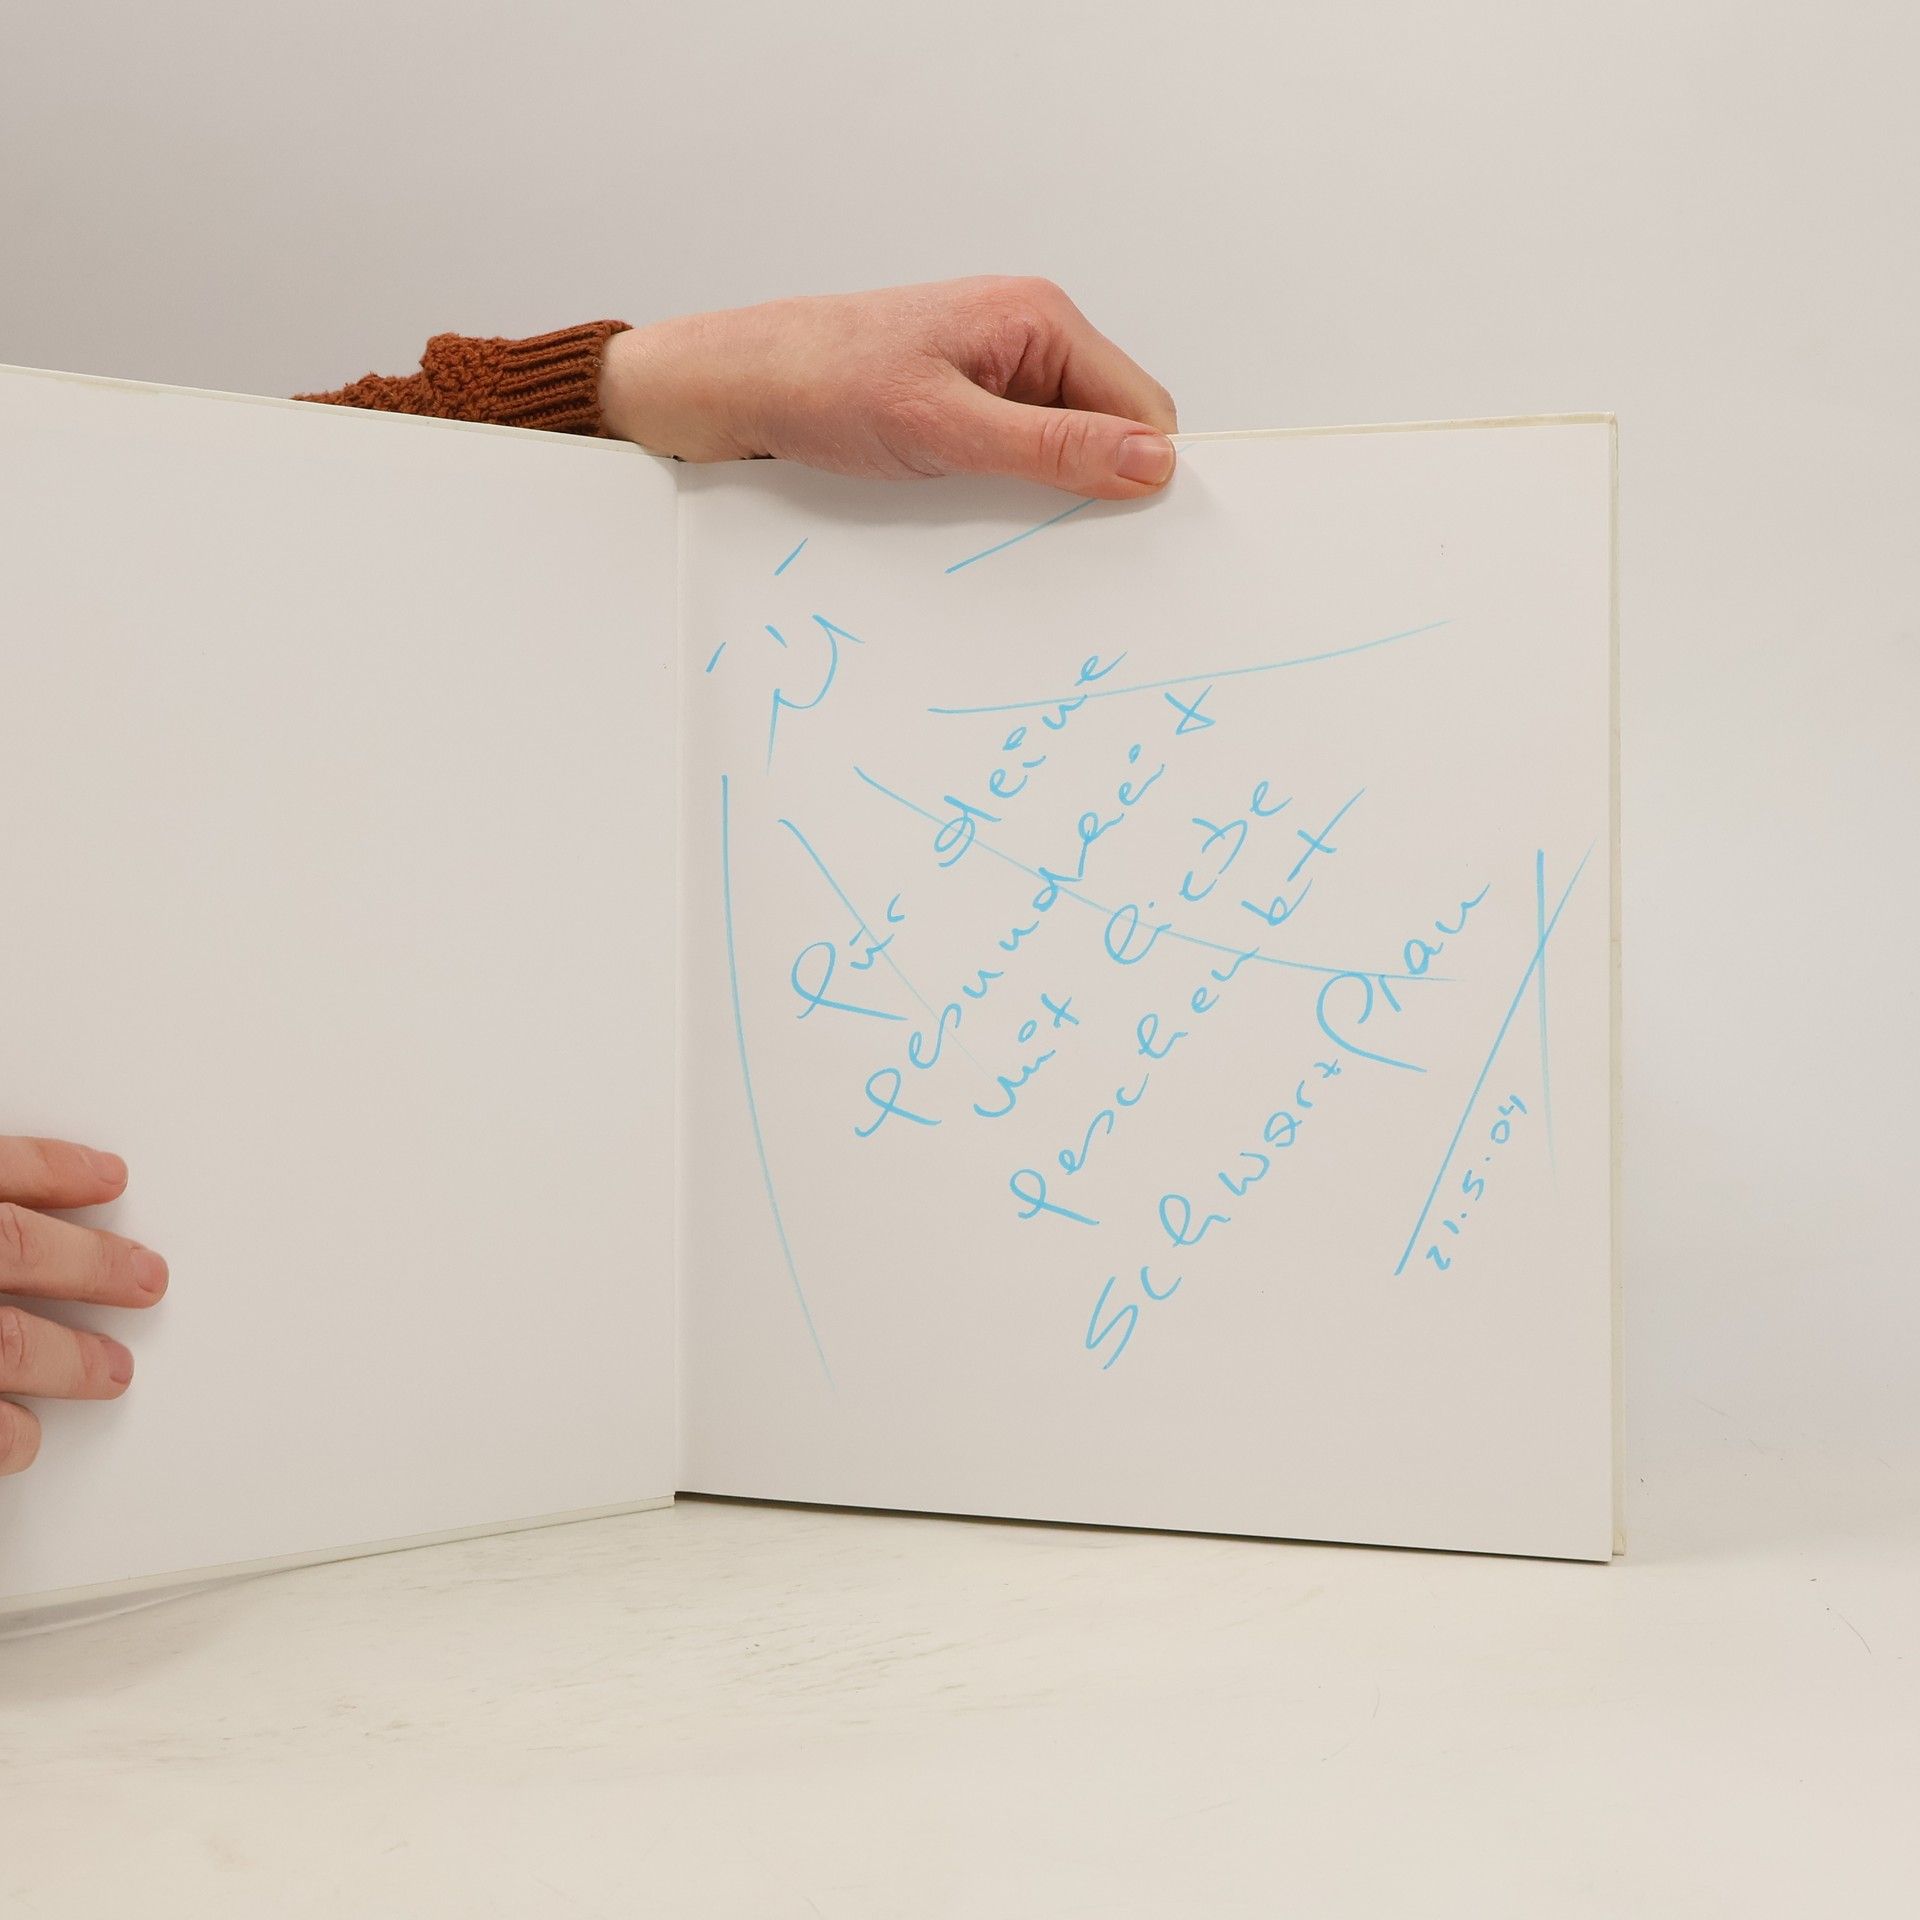 für deine
gesundheit
mit Liebe
geschenkt
Schwarz frau
21.5.04